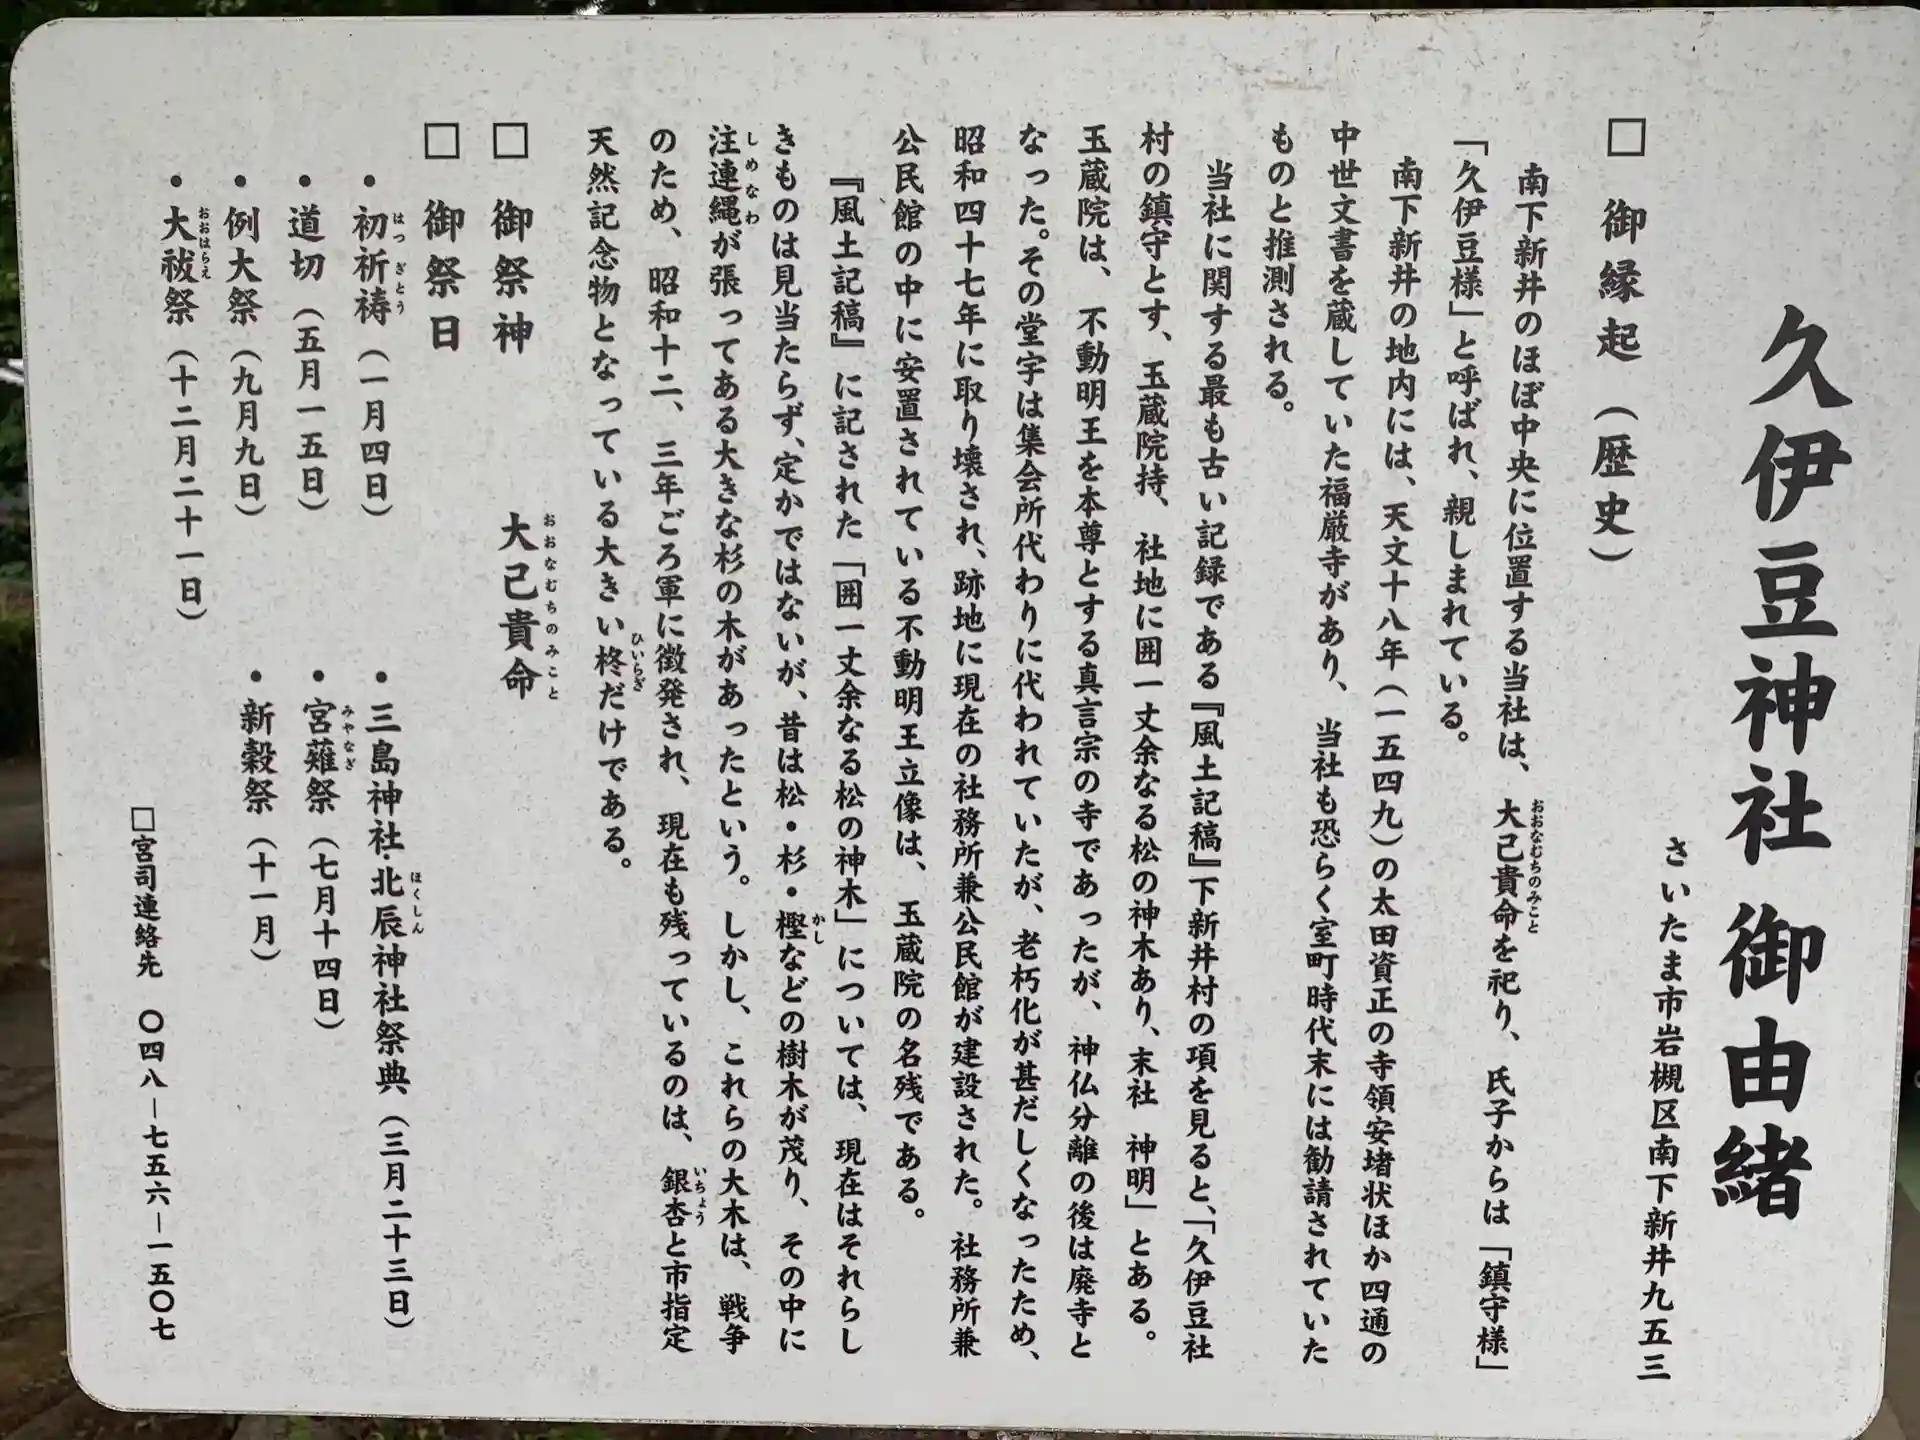 久伊豆神社 御由緒
さいたま市岩槻区南下新井九五三
□ 御縁起（歴史）
南下新井のほぼ中央に位置する当社は、大己貴命を祀り、氏子からは「鎮守様」
おおなむちのみこと
「久伊豆様」と呼ばれ、親しまれている。
南下新井の地内には、天文十八年（一五四九）の太田資正の寺領安堵状ほか四通の
中世文書を蔵していた福厳寺があり、当社も恐らく室町時代末には勧請されていた
ものと推測される。
当社に関する最も古い記録である『風土記稿』下新井村の項を見ると、「久伊豆社
村の鎮守とす、玉蔵院持、社地に囲一丈余なる松の神木あり、末社 神明」とある。
玉蔵院は、不動明王を本尊とする真言宗の寺であったが、神仏分離の後は廃寺と
なった。その堂宇は集会所代わりに代われていたが、老朽化が甚だしくなったため、
昭和四十七年に取り壊され、跡地に現在の社務所兼公民館が建設された。社務所兼
公民館の中に安置されている不動明王立像は、玉蔵院の名残である。
『風土記稿』に記された「囲一丈余なる松の神木」については、現在はそれらし
きものは見当たらず、定かではないが、昔は松・杉・樫などの樹木が茂り、その中に
かし
注連縄が張ってある大きな杉の木があったという。しかし、これらの大木は、戦争
しめなわ
のため、昭和十二、三年ごろ軍に徴発され、現在も残っているのは、銀杏と市指定
いちょう
天然記念物となっている大きい柊だけである。
ひいらぎ
□ 御祭神 大己貴命
おおなむちのみこと
□ 御祭日
・初祈祷（一月四日）
はつぎとう
・三島神社・北辰神社祭典（三月二十三日）
ほくしん
・道切（五月一五日）
・宮薙祭（七月十四日）
みやなぎ
・例大祭（九月九日）
・新穀祭（十一月）
・大祓祭（十二月二十一日）
おおはらえ
□宮司連絡先 〇四八－七五六－一五〇七